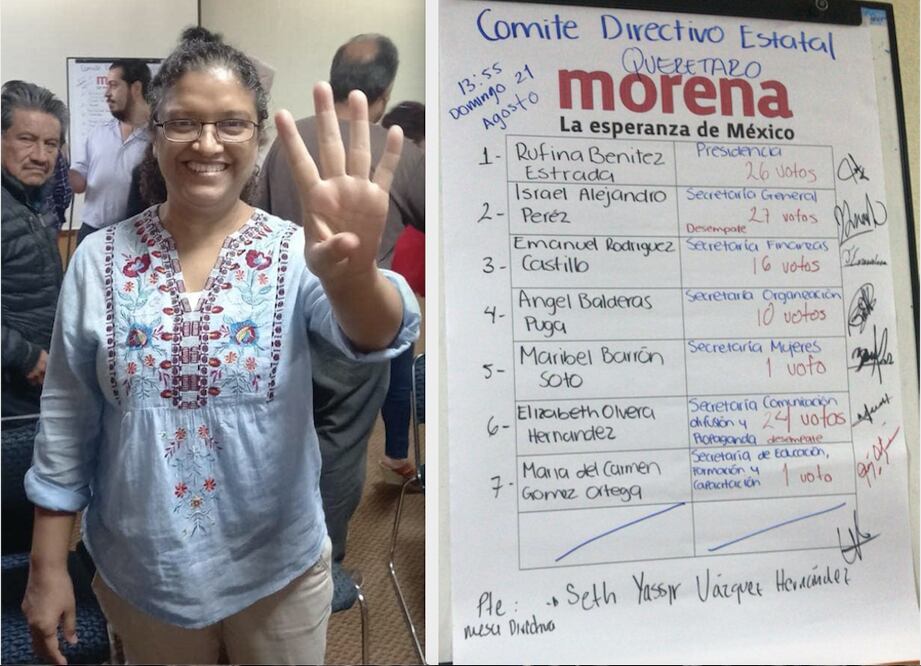 Comite Directivo Estatal
QUERETARO
13:55
Domingo 21
Agosto
morena
La esperanza de México
1- Rufina Benitez Estrada Presidencia 26 votos
2- Israel Alejandro Peréz Secretaría General 27 votos Desempate
3- Emanuel Rodriguez Castillo Secretaría Finanzas 16 votos
4- Angel Balderas Puga Secretaría Organización 10 votos
5- Maribel Barrón Soto Secretaría Mujeres 1 voto
6- Elizabeth Olvera Hernandez Secretaría Comunicación difusión y Propaganda 24 votos desempate
7- Maria del Carmen Gomez Ortega Secretaría de Educación, Formación y Capacitación 1 voto
Pte: Seth Yassir Vázquez Hernández
mesa Directiva